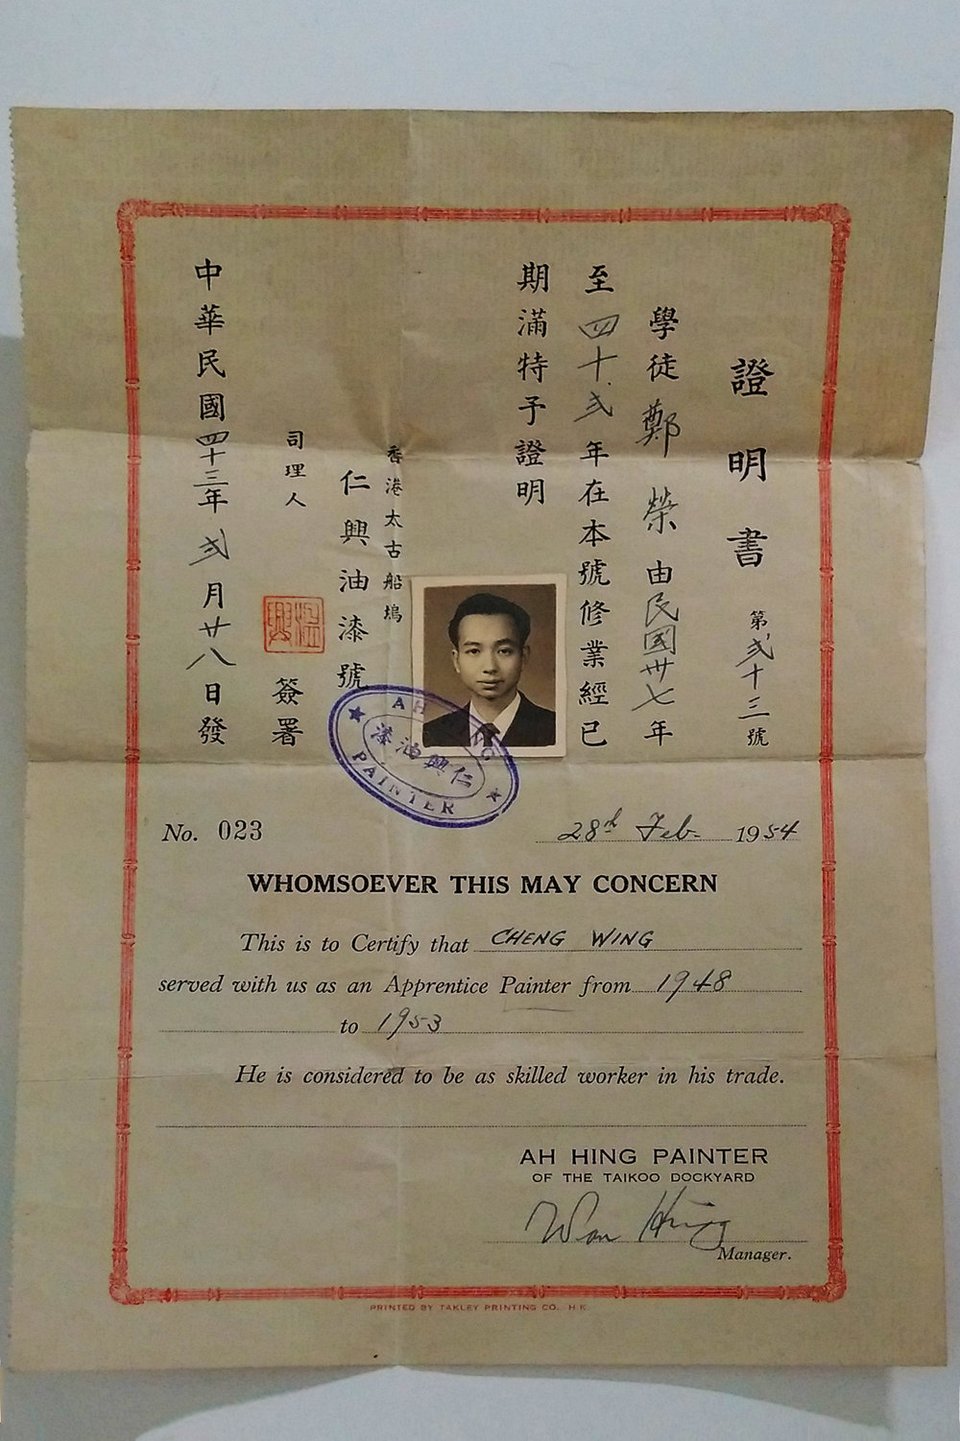 證明書
第弍十三號
學徒鄭榮由民國卅七年
至四十弍年在本號修業經已
期滿特予證明
香港太古船塢
仁興油漆號
司理人
簽署
中華民國四十三年弍月廿八日發
AH HING
仁興油漆
PAINTER
No. 023
28th Feb. 1954
WHOMSOEVER THIS MAY CONCERN
This is to Certify that CHENG WING
served with us as an Apprentice Painter from 1948
to 1953
He is considered to be as skilled worker in his trade.
AH HING PAINTER
OF THE TAIKOO DOCKYARD
Wan Hing
Manager.
PRINTED BY TAKLEY PRINTING CO. H K